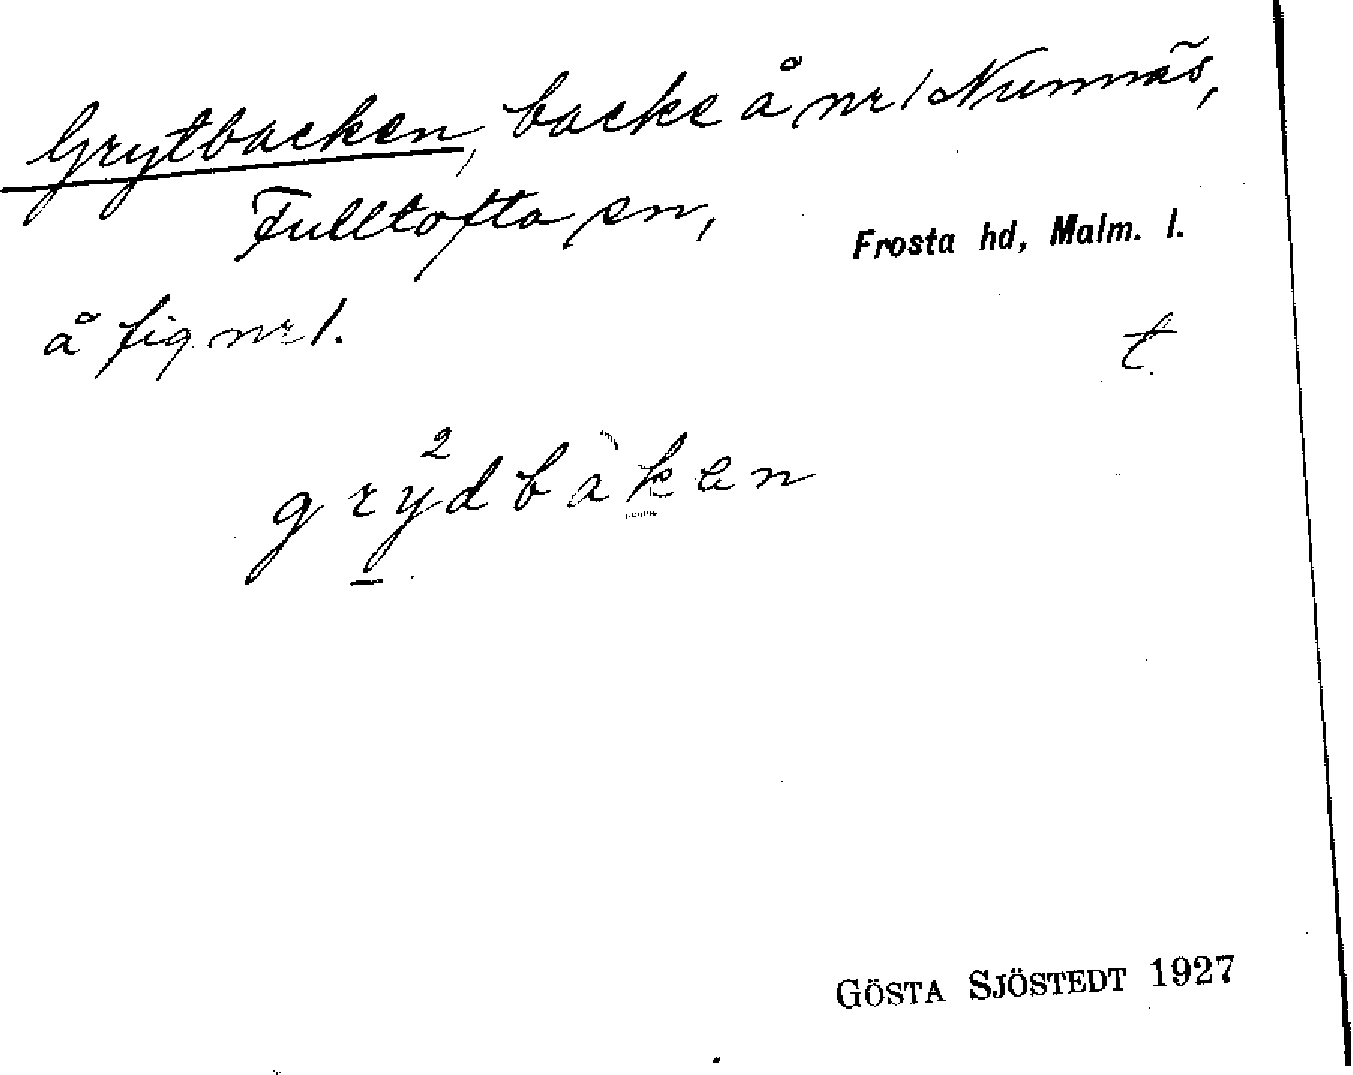 Grytbacken, backe å nr 1 Nunnäs,
Fulltofta sn, Frosta hd, Malm. l.
å fig. nr 1. t.
grydbàken
GÖSTA SJÖSTEDT 1927